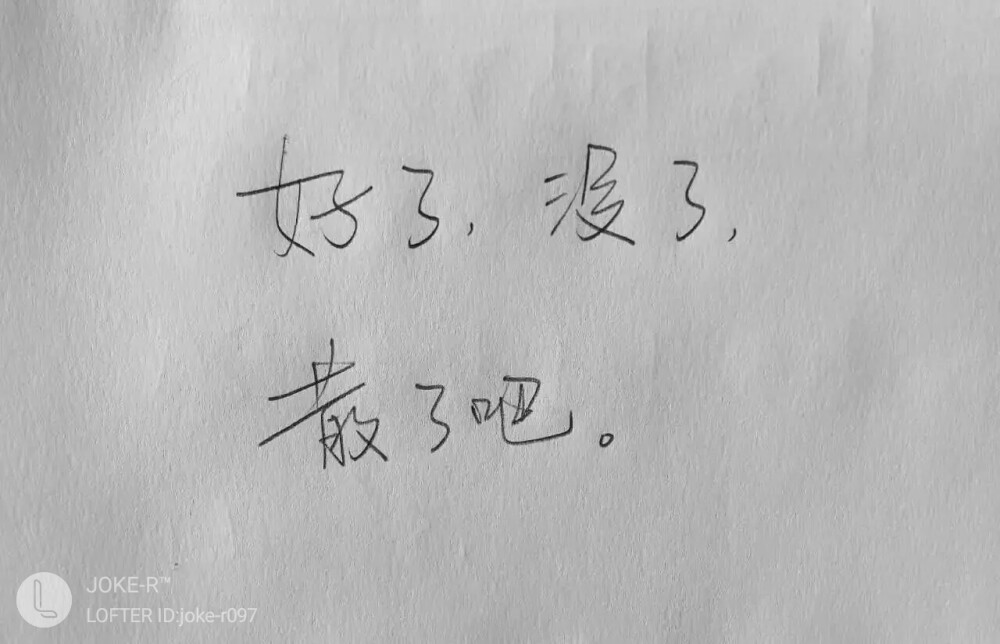 好了，没了，
散了吧。
JOKE-R™
LOFTER ID:joke-r097